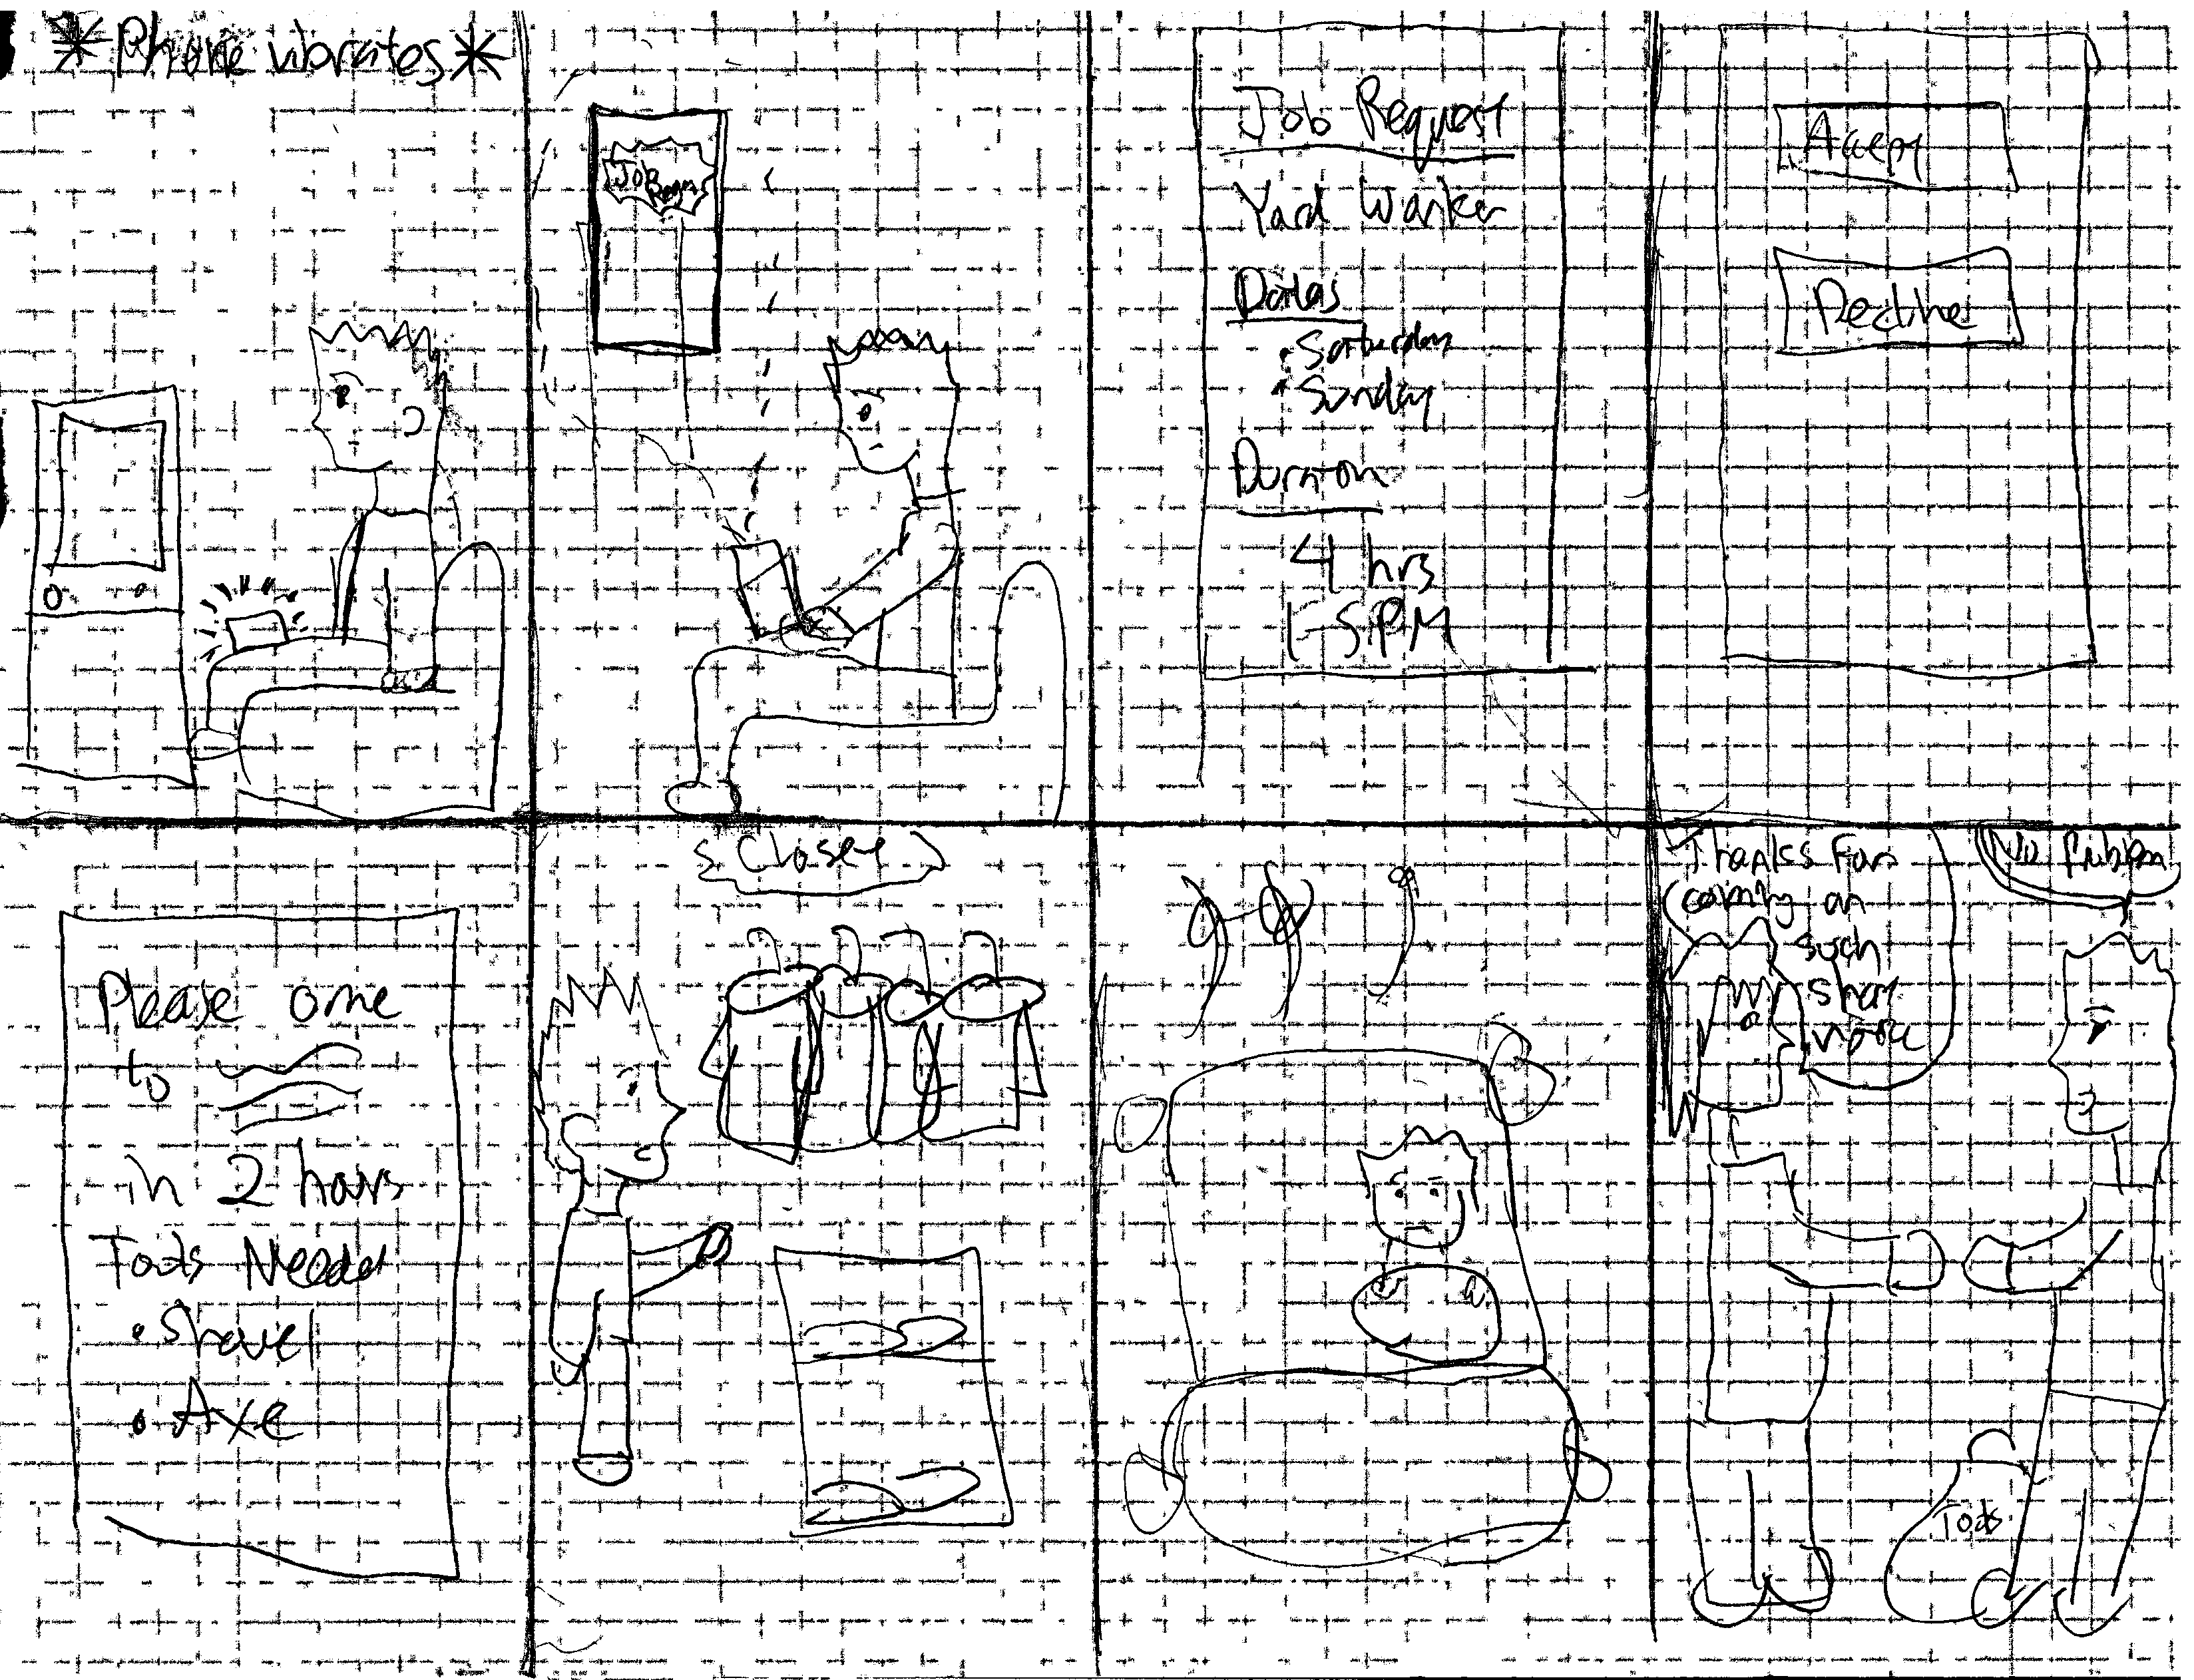 *Phone vibrates*
Job
Reqn
Job Request
Yard Worker
Dates
• Saturday
• Sunday
Duration
4 hrs
1-5 PM
Accept
Decline
Please come
to
in 2 hours
Tools Needed
• Shovel
• Axe
Closet
Thanks For
coming on
such
short
notice
No Problem
Tools